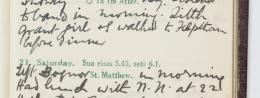 to band in morning. Tilth
Grant girl & walked to Felpham
before dinner
21. Saturday. Sun rises 5.45, sets 6.1.
St. Matthew.
Left Bognor in morning
Had lunch with N.N. at 22